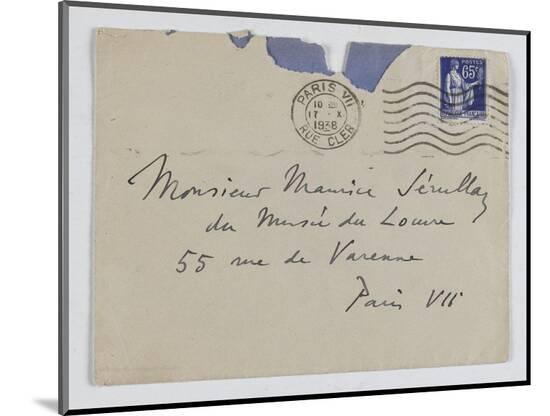 PARIS VII
10
17 - X
1938
RUE CLER
POSTES
65c
Monsieur Maurice Sérullaz
du Musée du Louvre
55 rue de Varenne
Paris VIIe